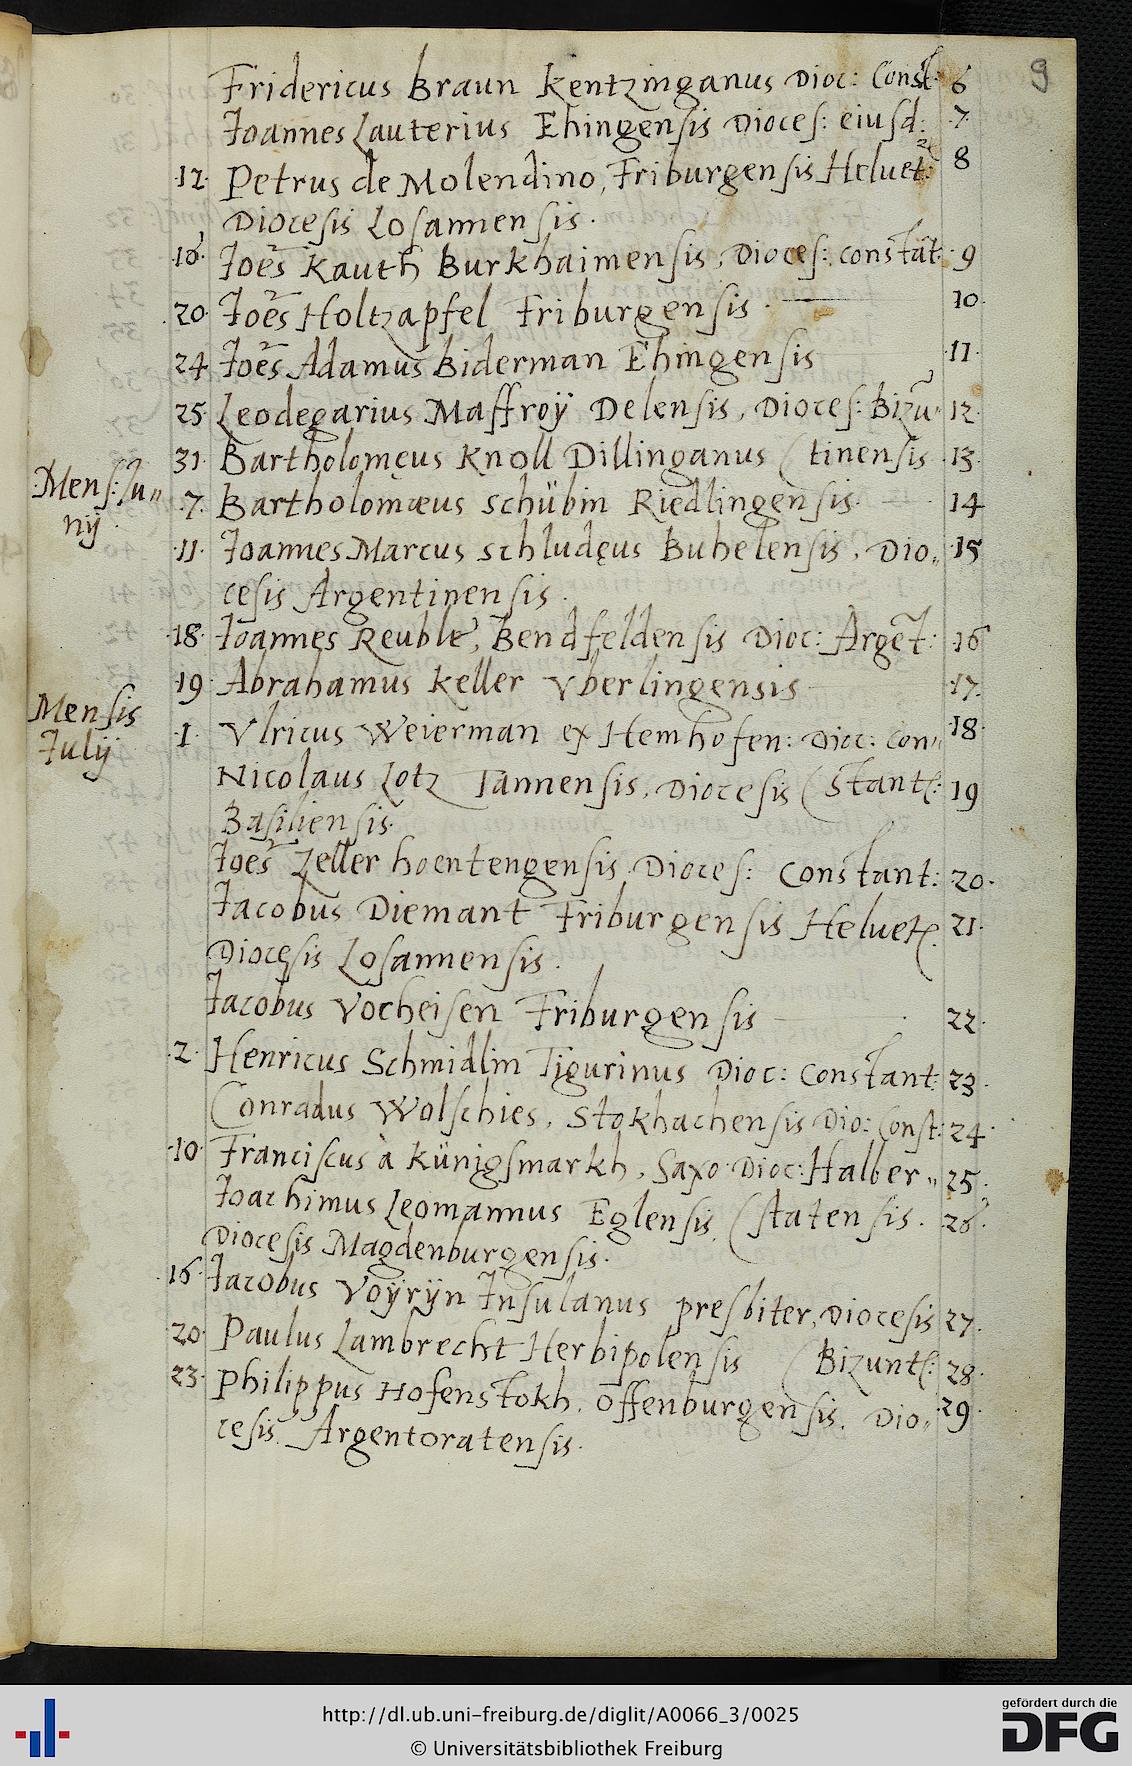 9
Fridericus Braun Kentzinganus Dioc: Const: 6
Joannes Lauterius Ehingensis Dioces: eiusd: 7.
12. Petrus de Molendino, Friburgensis Helvet: 8
Diocesis Losannensis.
16. Joes Kauth Burkhaimensis, Dioces: constat: 9
20. Joes Holtzapfel Friburgensis. 10.
24 Joes Adamus Biderman Ehingensis 11.
25. Leodegarius Maffroÿ Delensis, Dioces: Bizu„ 12.
31. Bartholomęus Knoll Dillinganus (tinensis 13.
Mens: Ju„
nÿ.
7. Bartholomæus Schübin Riedlingensis. 14
11. Joannes Marcus Schludęus Buhelensis, Dio„ 15
cesis Argentinensis.
18. Joannes Reuble, Bendfeldensis Dioc: Arget: 16
19. Abrahamus Keller Vberlingensis 17.
Mensis
Julÿ
1. Vlricus Weierman ex Hemhofen: Dioc: Con„ 18.
Nicolaus Lotz Tannensis, Diocesis (stant: 19
Basiliensis.
Joes Zeller hoentengensis Dioces: Constant: 20.
Jacobus Diemant Friburgensis Helvet. 21.
Diocesis Losannensis.
Jacobus Vocheisen Friburgensis 22.
2. Henricus Schmidlin Tigurinus Dioc: Constant: 23.
Conradus Wolschies, Stokhachensis Dio: Const: 24.
10. Franciscus à Künigsmarkh, Saxo Dioc: Halber„ 25.
Joachimus Leomannus Eglensis, (statensis. 26.
Diocesis Magdenburgensis.
16. Jacobus Voÿrÿn Insulanus presbiter, Diocesis 27.
20. Paulus Lambrecht Herbipolensis (Bizunt: 28.
23. Philippus Hofenstokh, Offenburgensis, Dio„ 29.
cesis Argentoratensis.
http://dl.ub.uni-freiburg.de/diglit/A0066_3/0025
© Universitätsbibliothek Freiburg
gefördert durch die
DFG